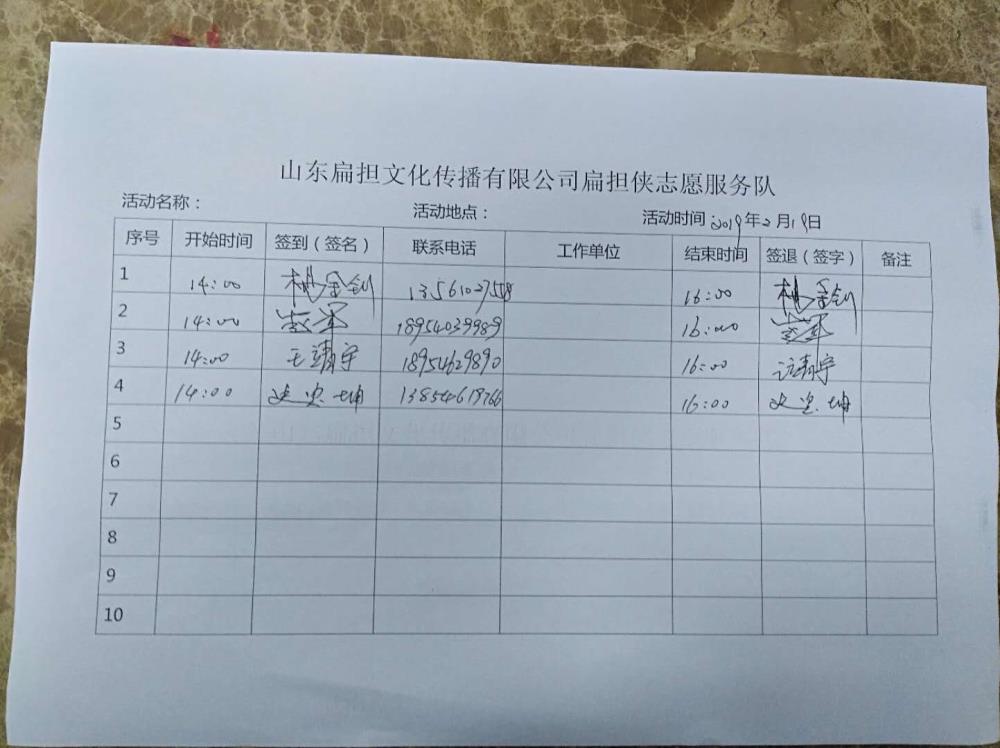 山东扁担文化传播有限公司扁担侠志愿服务队
活动名称： 活动地点： 活动时间 2019年2月19日
序号 开始时间 签到（签名） 联系电话 工作单位 结束时间 签退（签字） 备注
1 14:00 13561027558 16:00
2 14:00 18954039989 16:00
3 14:00 王靖宇 18954629890 16:00 靖宇
4 14:00 13854618766 16:00
5
6
7
8
9
10